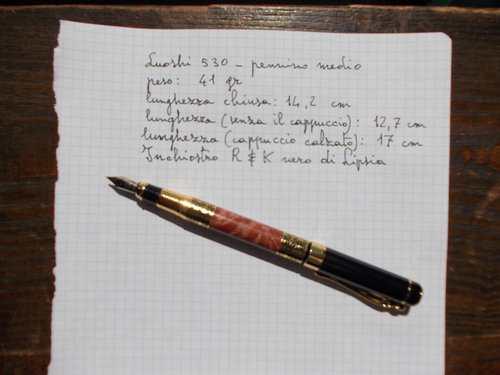 Luoshi 530 - pennino medio
peso: 41 gr
lunghezza chiusa: 14,2 cm
lunghezza (senza il cappuccio): 12,7 cm
lunghezza (cappuccio calzato): 17 cm
Inchiostro R & K nero di Lipsia